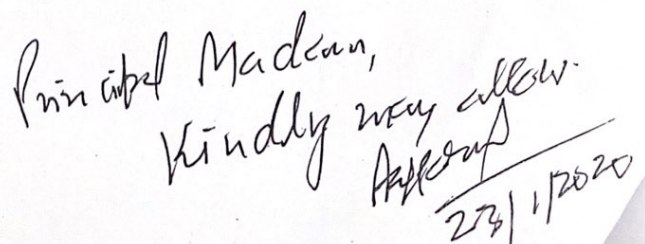 Principal Madam,
Kindly may allow.
23/1/2020